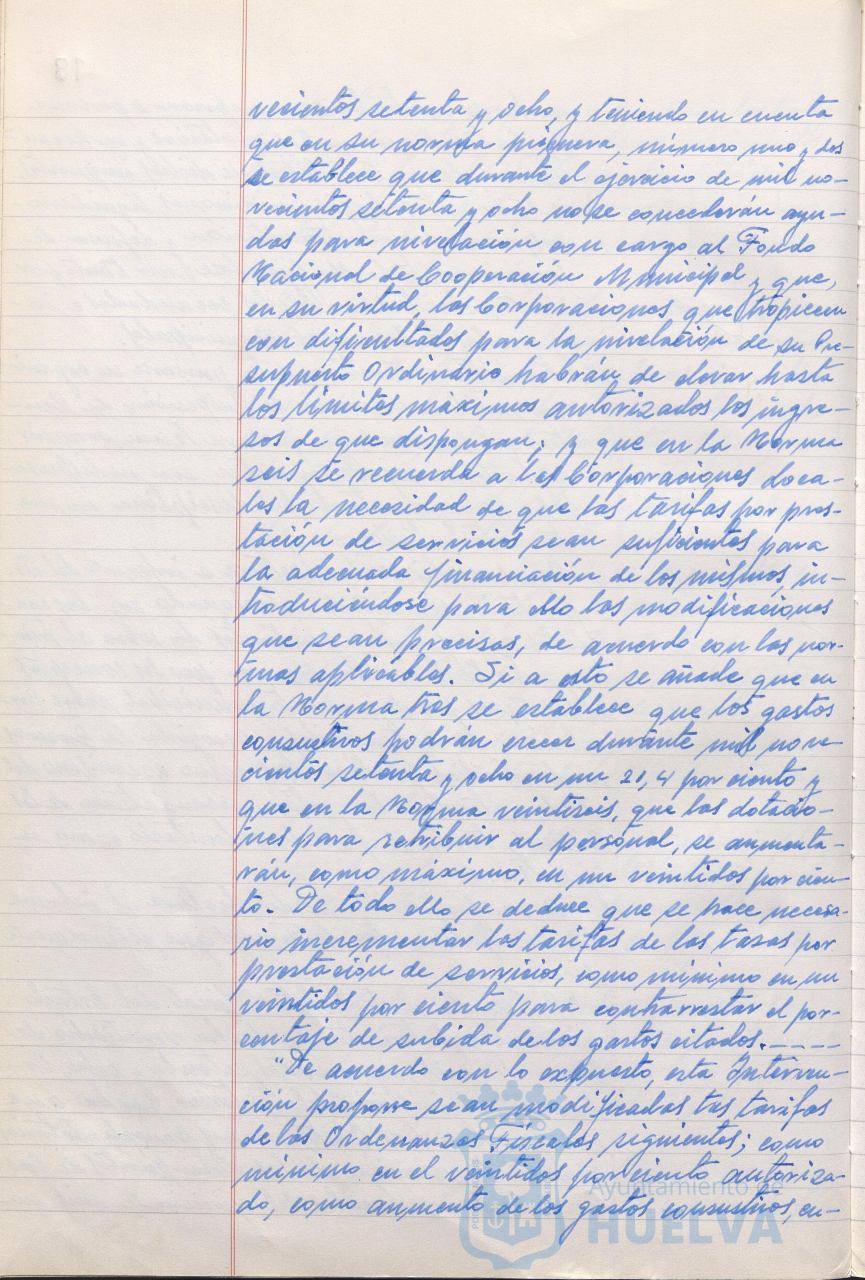 vecientos setenta y ocho, y teniendo en cuenta
que en su norma primera, número uno y dos
se establece que durante el ejercicio de mil no-
vecientos setenta y ocho no se concederán ayu-
das para nivelación con cargo al Fondo
Nacional de Cooperación Municipal y que,
en su virtud, las Corporaciones que tropiecen
con dificultades para la nivelación de su Pre-
supuesto Ordinario habrán de elevar hasta
los límites máximos autorizados los ingre-
sos de que dispongan; y que en la Norma
seis se recuerda a las Corporaciones Loca-
les la necesidad de que las tarifas por pres-
tación de servicios sean suficientes para
la adecuada financiación de los mismos, in-
troduciéndose para ello las modificaciones
que sean precisas, de acuerdo con las nor-
mas aplicables. Si a esto se añade que en
la Norma tres se establece que los gastos
consuntivos podrán crecer durante mil nove-
cientos setenta y ocho en un 21,4 por ciento y
que en la Norma veintiseis, que las dotacio-
nes para retribuir al personal, se aumenta-
rán, como máximo, en un veintidos por cien-
to. De todo ello se deduce que se hace necesa-
rio incrementar las tarifas de las tasas por
prestación de servicios, como mínimo en un
veintidos por ciento para contrarrestar el por-
centaje de subida de los gastos citados.----
"De acuerdo con lo expuesto, esta Interven-
ción propone sean modificadas las tarifas
de las Ordenanzas Fiscales siguientes; como
mínimo en el veintidos por ciento autoriza-
do, como aumento de los gastos consuntivos, en-
Ayuntamiento de
HUELVA